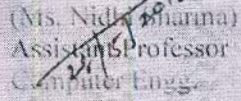 (Ms. Nidhi Sharma)
Assistant Professor
Computer Engg.